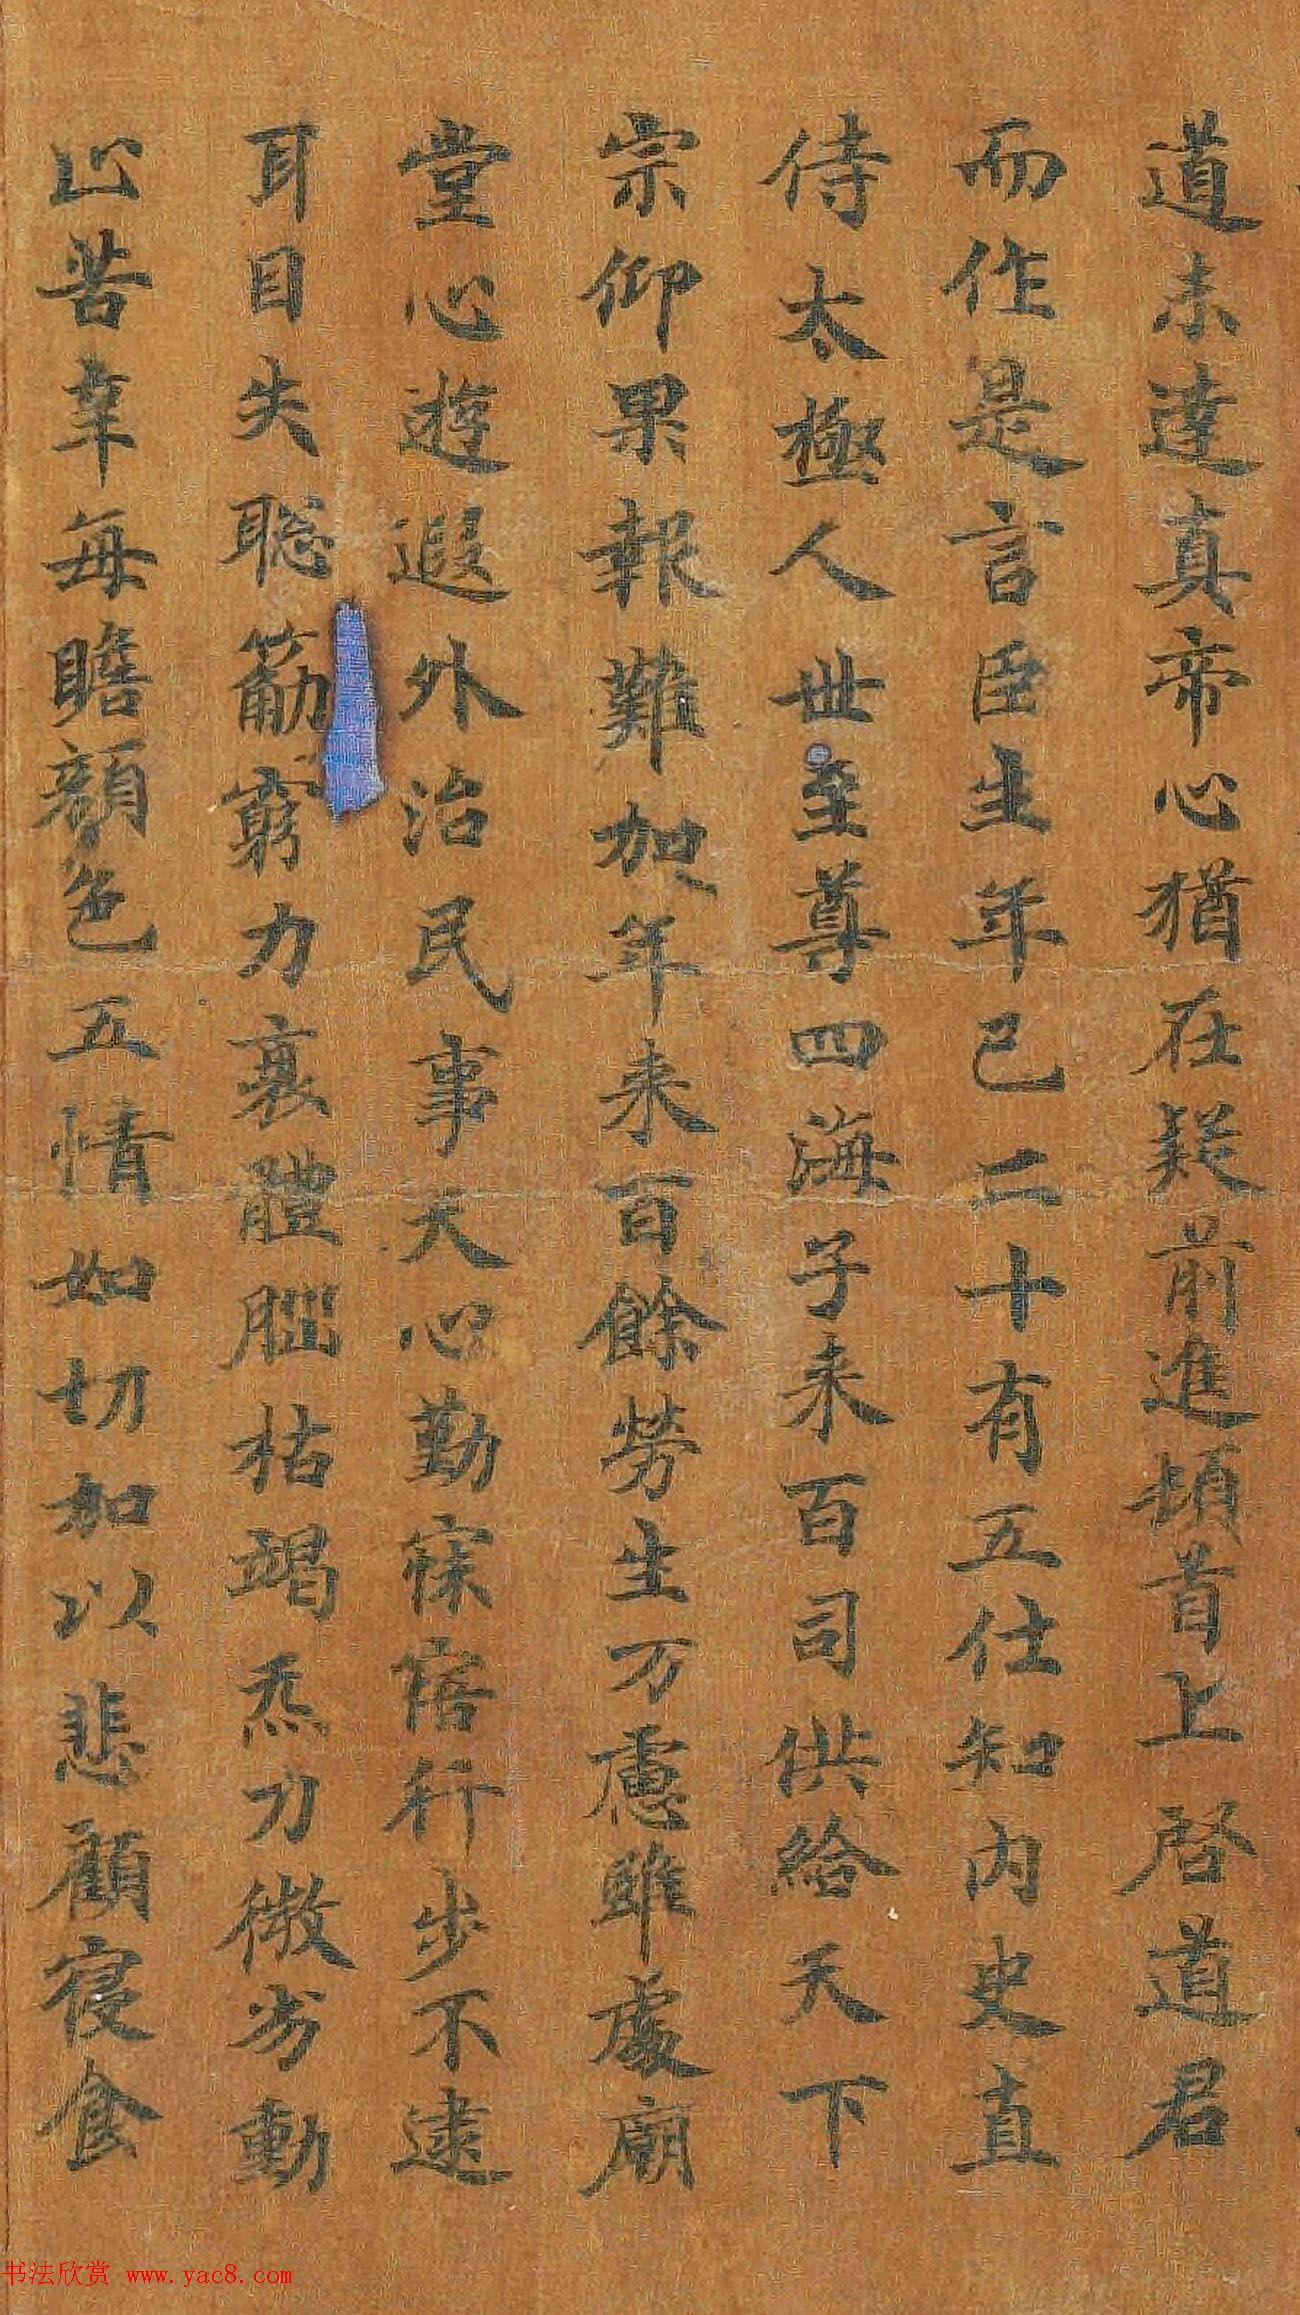 道未達真帝心猶在疑前進頓首上啓道君
而作是言臣生年已二十有五仕知内史直
侍太極人世至尊四海子来百司供給天下
宗仰果報難加年来百餘勞生万慮雖處廟
堂心遊遐外治民事天心勤寐寤行步不逮
耳目失聡筋窮力衰體脛枯竭炁力微劣動
止苦辛每瞻顔色五情如切加以悲顧寝食
书法欣赏 www.yac8.com